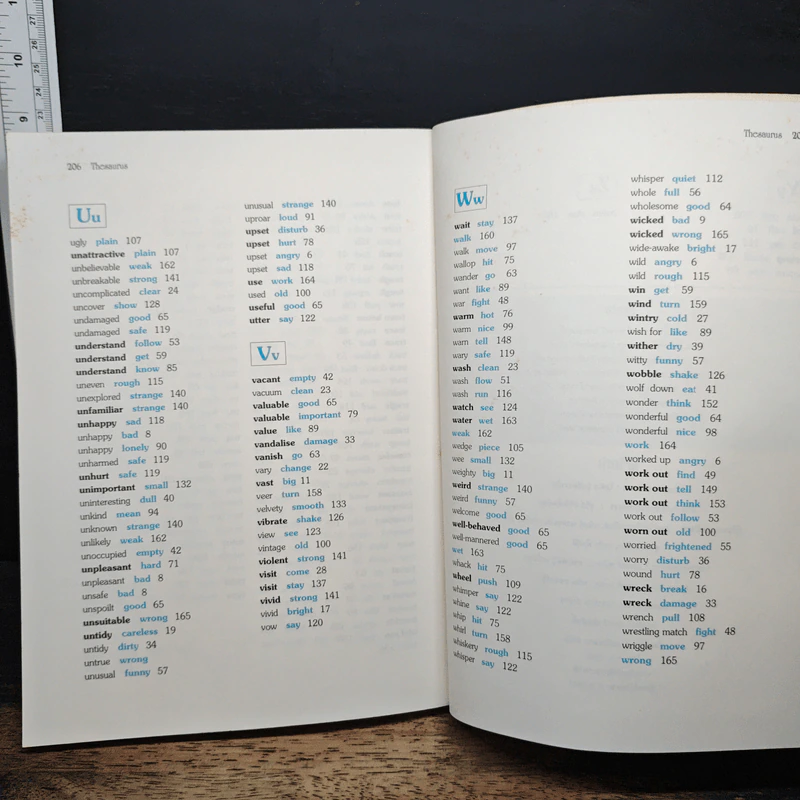 10
9
27
26
25
24
23
206 Thesaurus
Uu
ugly plain 107
unattractive plain 107
unbelievable weak 162
unbreakable strong 141
uncomplicated clear 24
uncover show 128
undamaged good 65
undamaged safe 119
understand follow 53
understand get 59
understand know 85
uneven rough 115
unexplored strange 140
unfamiliar strange 140
unhappy sad 118
unhappy bad 8
unhappy lonely 90
unharmed safe 119
unhurt safe 119
unimportant small 132
uninteresting dull 40
unkind mean 94
unknown strange 140
unlikely weak 162
unoccupied empty 42
unpleasant hard 71
unpleasant bad 8
unsafe bad 8
unspoilt good 65
unsuitable wrong 165
untidy careless 19
untidy dirty 34
untrue wrong
unusual funny 57
unusual strange 140
uproar loud 91
upset disturb 36
upset hurt 78
upset angry 6
upset sad 118
use work 164
used old 100
useful good 65
utter say 122
Vv
vacant empty 42
vacuum clean 23
valuable good 65
valuable important 79
value like 89
vandalise damage 33
vanish go 63
vary change 22
vast big 11
veer turn 158
velvety smooth 133
vibrate shake 126
view see 123
vintage old 100
violent strong 141
visit come 28
visit stay 137
vivid strong 141
vivid bright 17
vow say 120
Thesaurus 20
Ww
wait stay 137
walk 160
walk move 97
wallop hit 75
wander go 63
want like 89
war fight 48
warm hot 76
warm nice 99
warn tell 148
wary safe 119
wash clean 23
wash flow 51
wash run 116
watch see 124
water wet 163
weak 162
wedge piece 105
wee small 132
weighty big 11
weird strange 140
weird funny 57
welcome good 65
well-behaved good 65
well-mannered good 65
wet 163
whack hit 75
wheel push 109
whimper say 122
whine say 122
whip hit 75
whirl turn 158
whiskery rough 115
whisper say 122
whisper quiet 112
whole full 56
wholesome good 64
wicked bad 9
wicked wrong 165
wide-awake bright 17
wild angry 6
wild rough 115
win get 59
wind turn 159
wintry cold 27
wish for like 89
wither dry 39
witty funny 57
wobble shake 126
wolf down eat 41
wonder think 152
wonderful good 64
wonderful nice 98
work 164
worked up angry 6
work out find 49
work out tell 149
work out think 153
work out follow 53
worn out old 100
worried frightened 55
worry disturb 36
wound hurt 78
wreck break 16
wreck damage 33
wrench pull 108
wrestling match fight 48
wriggle move 97
wrong 165